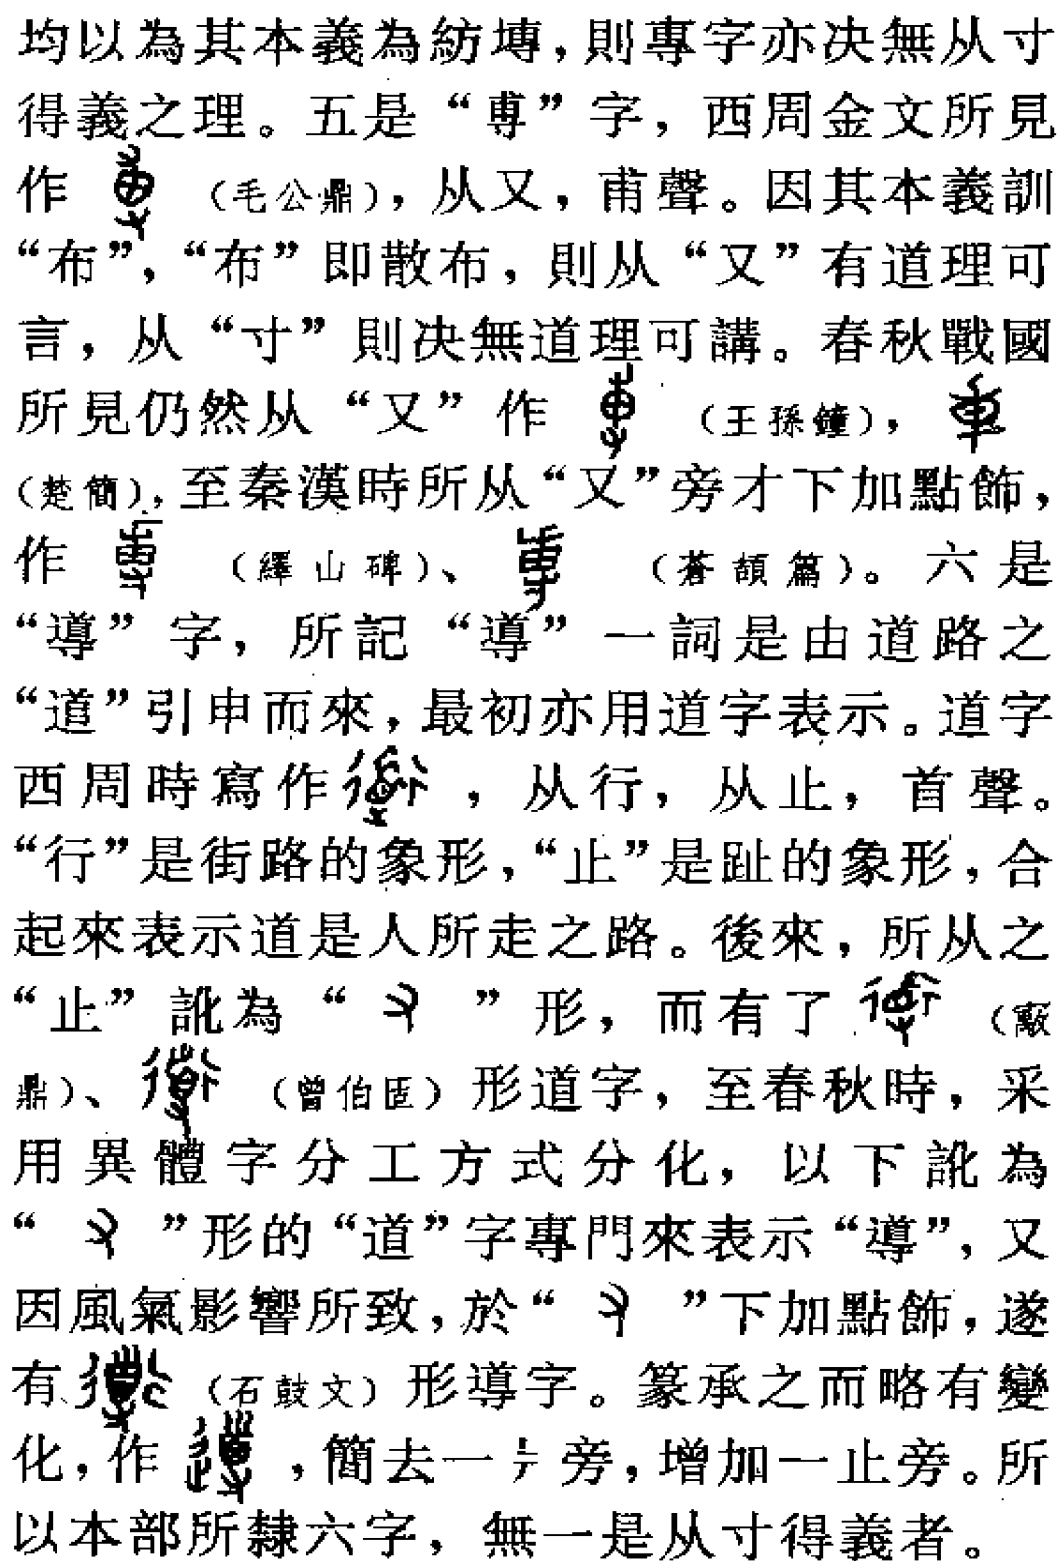 均以為其本義為紡塼，則專字亦決無从寸
得義之理。五是“尃”字，西周金文所見
作（毛公鼎），从又，甫聲。因其本義訓
“布”，“布”即散布，則从“又”有道理可
言，从“寸”則决無道理可講。春秋戰國
所見仍然从“又”作（王孫鐘），
（楚簡），至秦漢時所从“又”旁才下加點飾，
作（繹山碑）、（蒼頡篇）。六是
“導”字，所記“導”一詞是由道路之
“道”引申而來，最初亦用道字表示。道字
西周時寫作，从行，从止，首聲。
“行”是街路的象形，“止”是趾的象形，合
起來表示道是人所走之路。後來，所从之
“止”訛為“”形，而有了（
鼎）、（曾伯）形道字，至春秋時，采
用異體字分工方式分化，以下訛為
“”形的“道”字專門來表示“導”，又
因風氣影響所致，於“”下加點飾，遂
有（石鼓文）形導字。篆承之而略有變
化，作，簡去一旁，增加一止旁。所
以本部所隸六字，無一是从寸得義者。